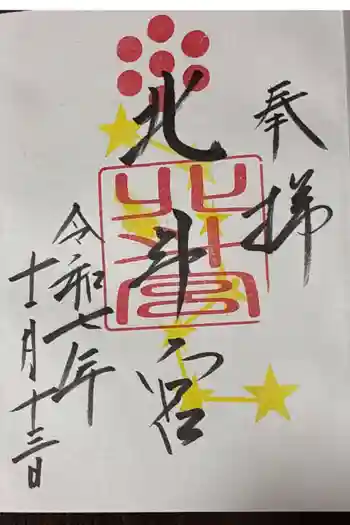 奉拝
北斗宮
北斗宮
令和七年
十一月十三日